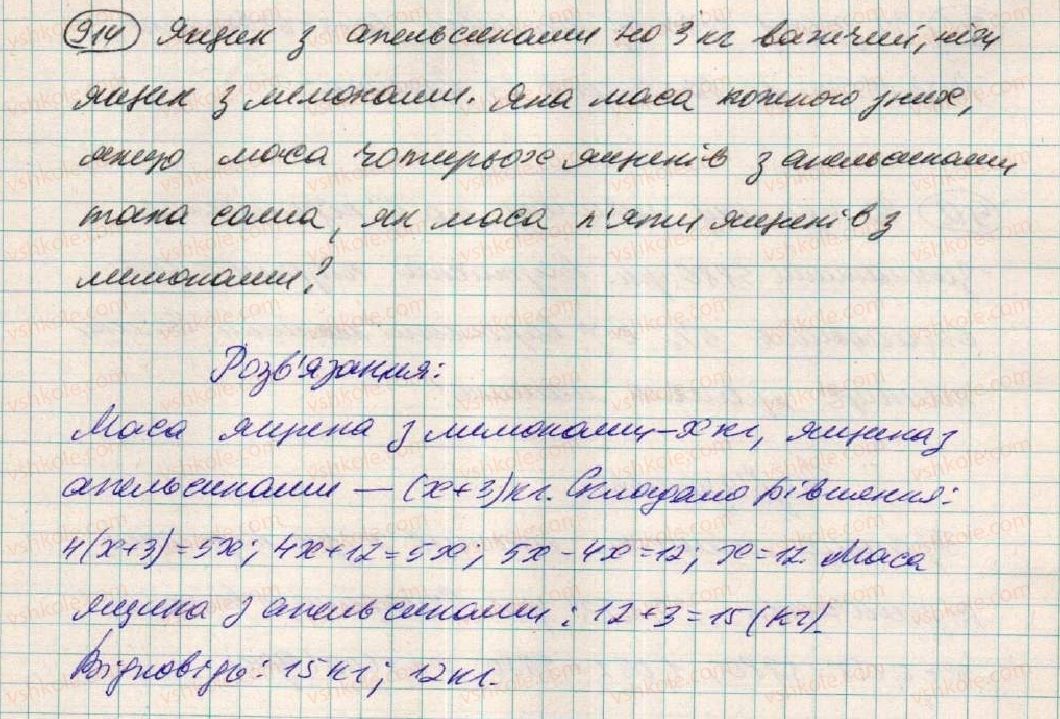 914 Ящик з апельсинами на 3 кг важчий, ніж
ящик з лимонами. Яка маса кожного з них,
якщо маса чотирьох ящиків з апельсинами
така сама, як маса п'яти ящиків з
лимонами?
Розв'язання:
Маса ящика з лимонами – х кг, ящика з
апельсинами — (х+3) кг. Складемо рівняння:
4(х+3)=5х; 4х+12=5х; 5х-4х=12; х=12. Маса
ящика з апельсинами: 12+3=15 (кг).
Відповідь: 15 кг; 12 кг.